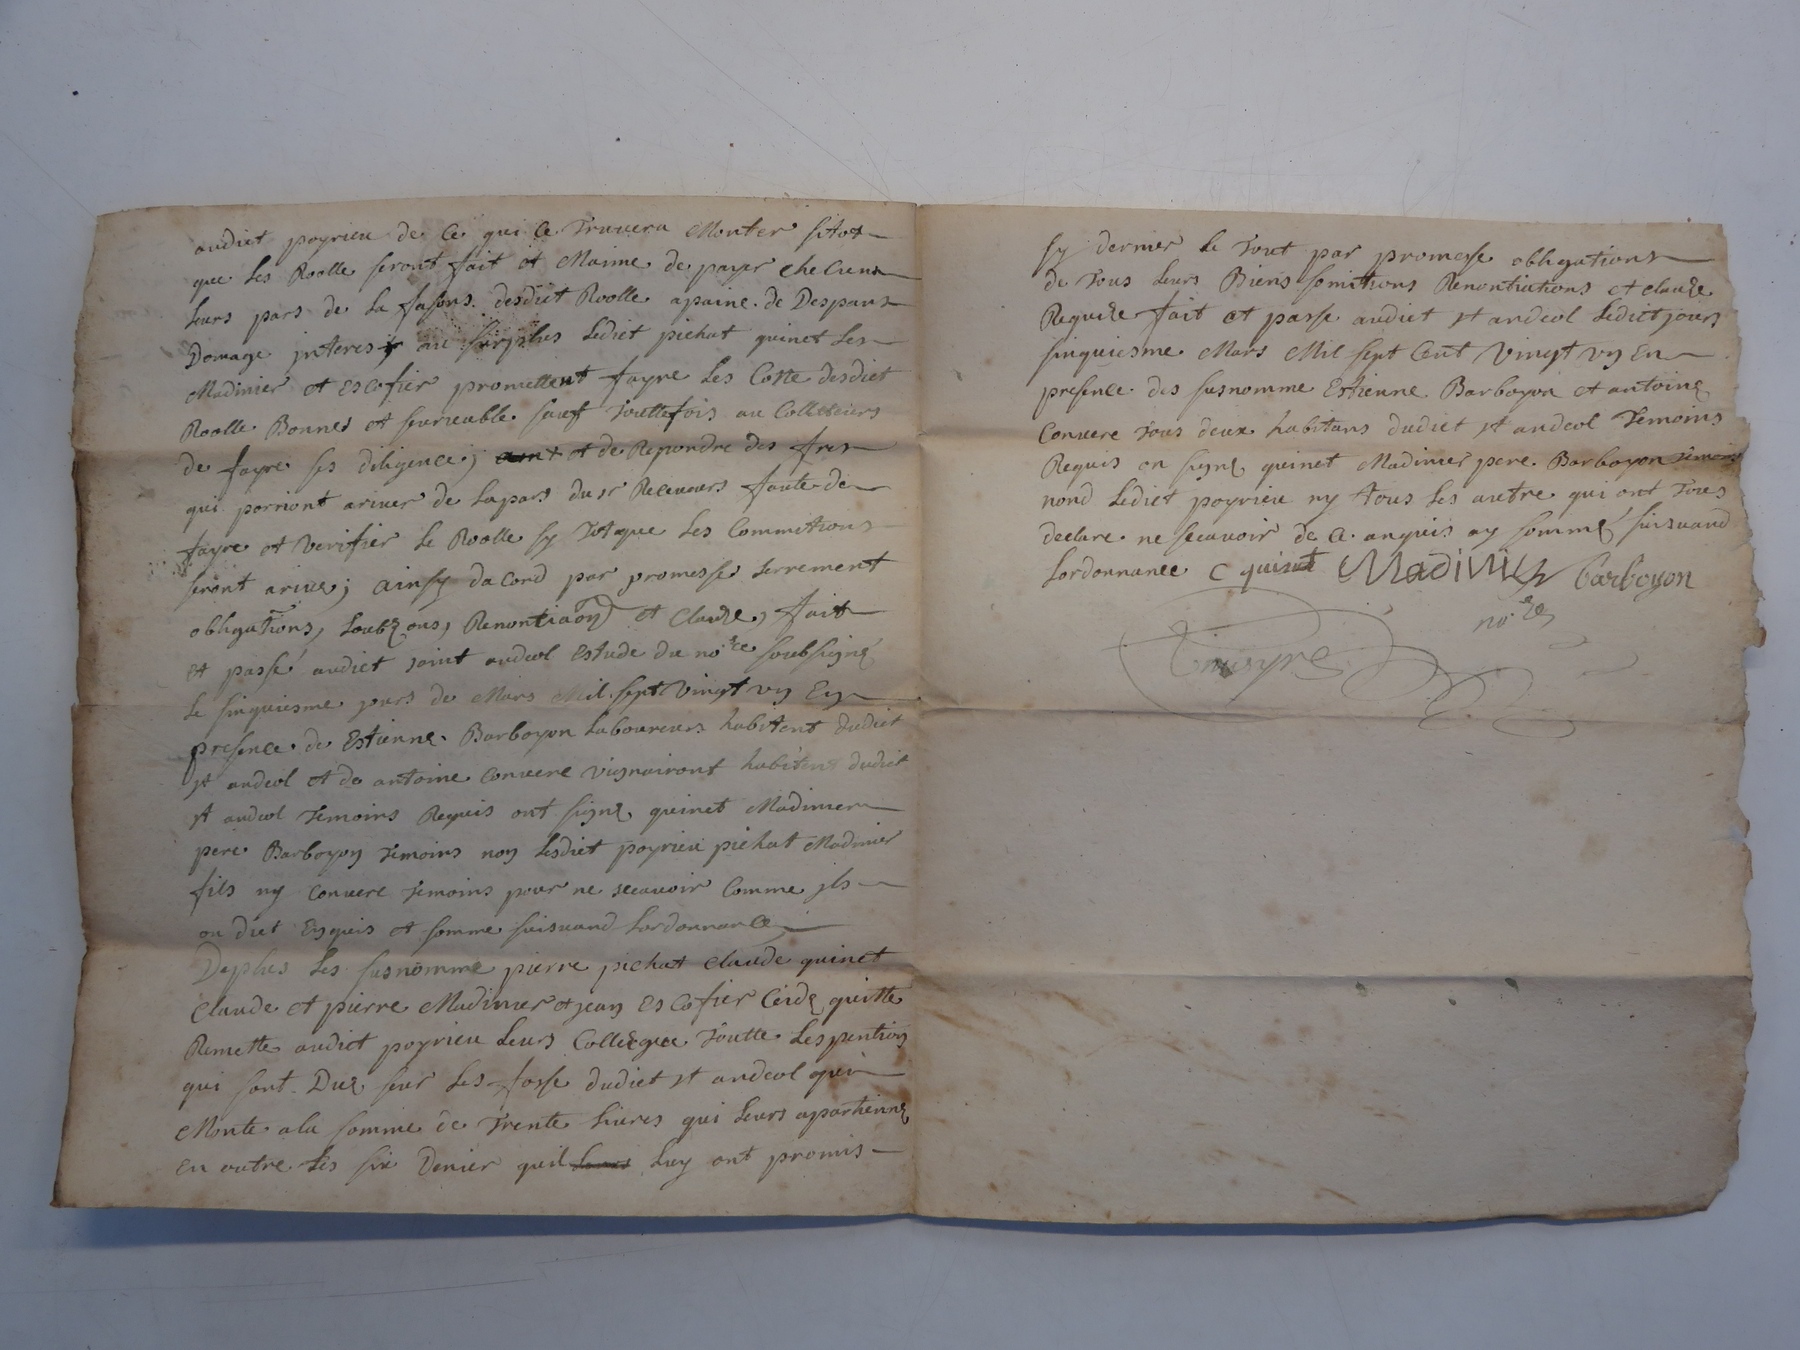 audict poyrieu de ce qui ce truvera monter sitot
que les Roolle seront fait et maime de payer checun
leurs pars de la fasons desdict Roolle apaine de Despans
Domage jnteres au surplus ledict pichat quinet les
Madinier et escofier promettent fayre les Cotte desdict
Roolle Bonnes et seureuble sauf touttefois au Colleteurs
de fayre ses diligence; et de Repondre des fres
qui porriont ariuer de lapars du sr Receueurs faute de
fayre et verifier le Roolle sy totque les Commitions
seront ariue; ainsy dacord par promesse serrement
obligations, Renontiaons et Clauze, fait
et passé audict saint andeol estude du noire soubsigné
le sinquiesme jours de Mars Mil sept vingt vij En
presence de Estienne Barboyon laboureurs habitent dudict
st andeol et de antoine conuere vignairont habitens dudict
st andeol temoins Requis ont signe quinet Madinier
pere Barboyon temoins non lesdict poyrieu pichat Madinier
fils ny conuere temoins pour ne scauoir comme jls
on dict Enquis et somme suisuand lordonnance
Deplus les susnomme pierre pichat claude quinet
claude et pierre Madinier et jean escofier Cede quitte
Remette audict poyrieu leurs Collegue toutte les pention
qui sont Due sur les fosse dudict st andeol qui
Monte ala somme de trente liures qui leurs apartienne
en outre les six Denier quil luy ont promis
sy dernier le tout par promesse obligations
de tous leurs Biens somitions Renontiations et clauze
Requise fait et passe audict st andeol ledict jours
sinquiesme Mars Mil sept Cent vingt vij En
presence des susnomme Estienne Barboyon et antoine
Conuere tous deux habitans dudict st andeol temoins
Requis on signe quinet Madinier pere Barboyon temoins
nond ledict poyrieu ny tous les autre qui ont tous
declare ne scauoir de ce anquis ay sommé suisuand
lordonnance C quinet Madinier barboyon
noire